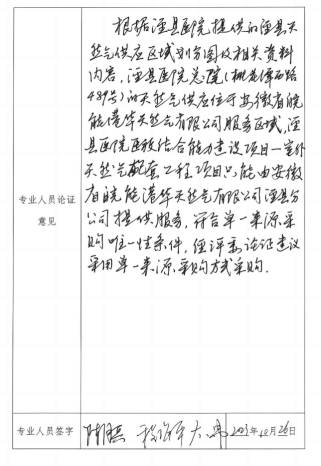 根据泾县医院提供的泾县天
然气供应区域划分图及相关资料
内容，泾县医院总院(桃花潭西路
489号)的天然气供应位于安徽省皖
能港华天然气有限公司服务区域，泾
县医院医防结合能力建设项目—室外
天然气配套工程项目只能由安徽
省皖能港华天然气有限公司泾县分
公司提供服务，符合单一来源采
购唯一性条件，经评审论证建议
采用单一来源采购方式采购.
专业人员论证
意见
专业人员签字
年12月26日